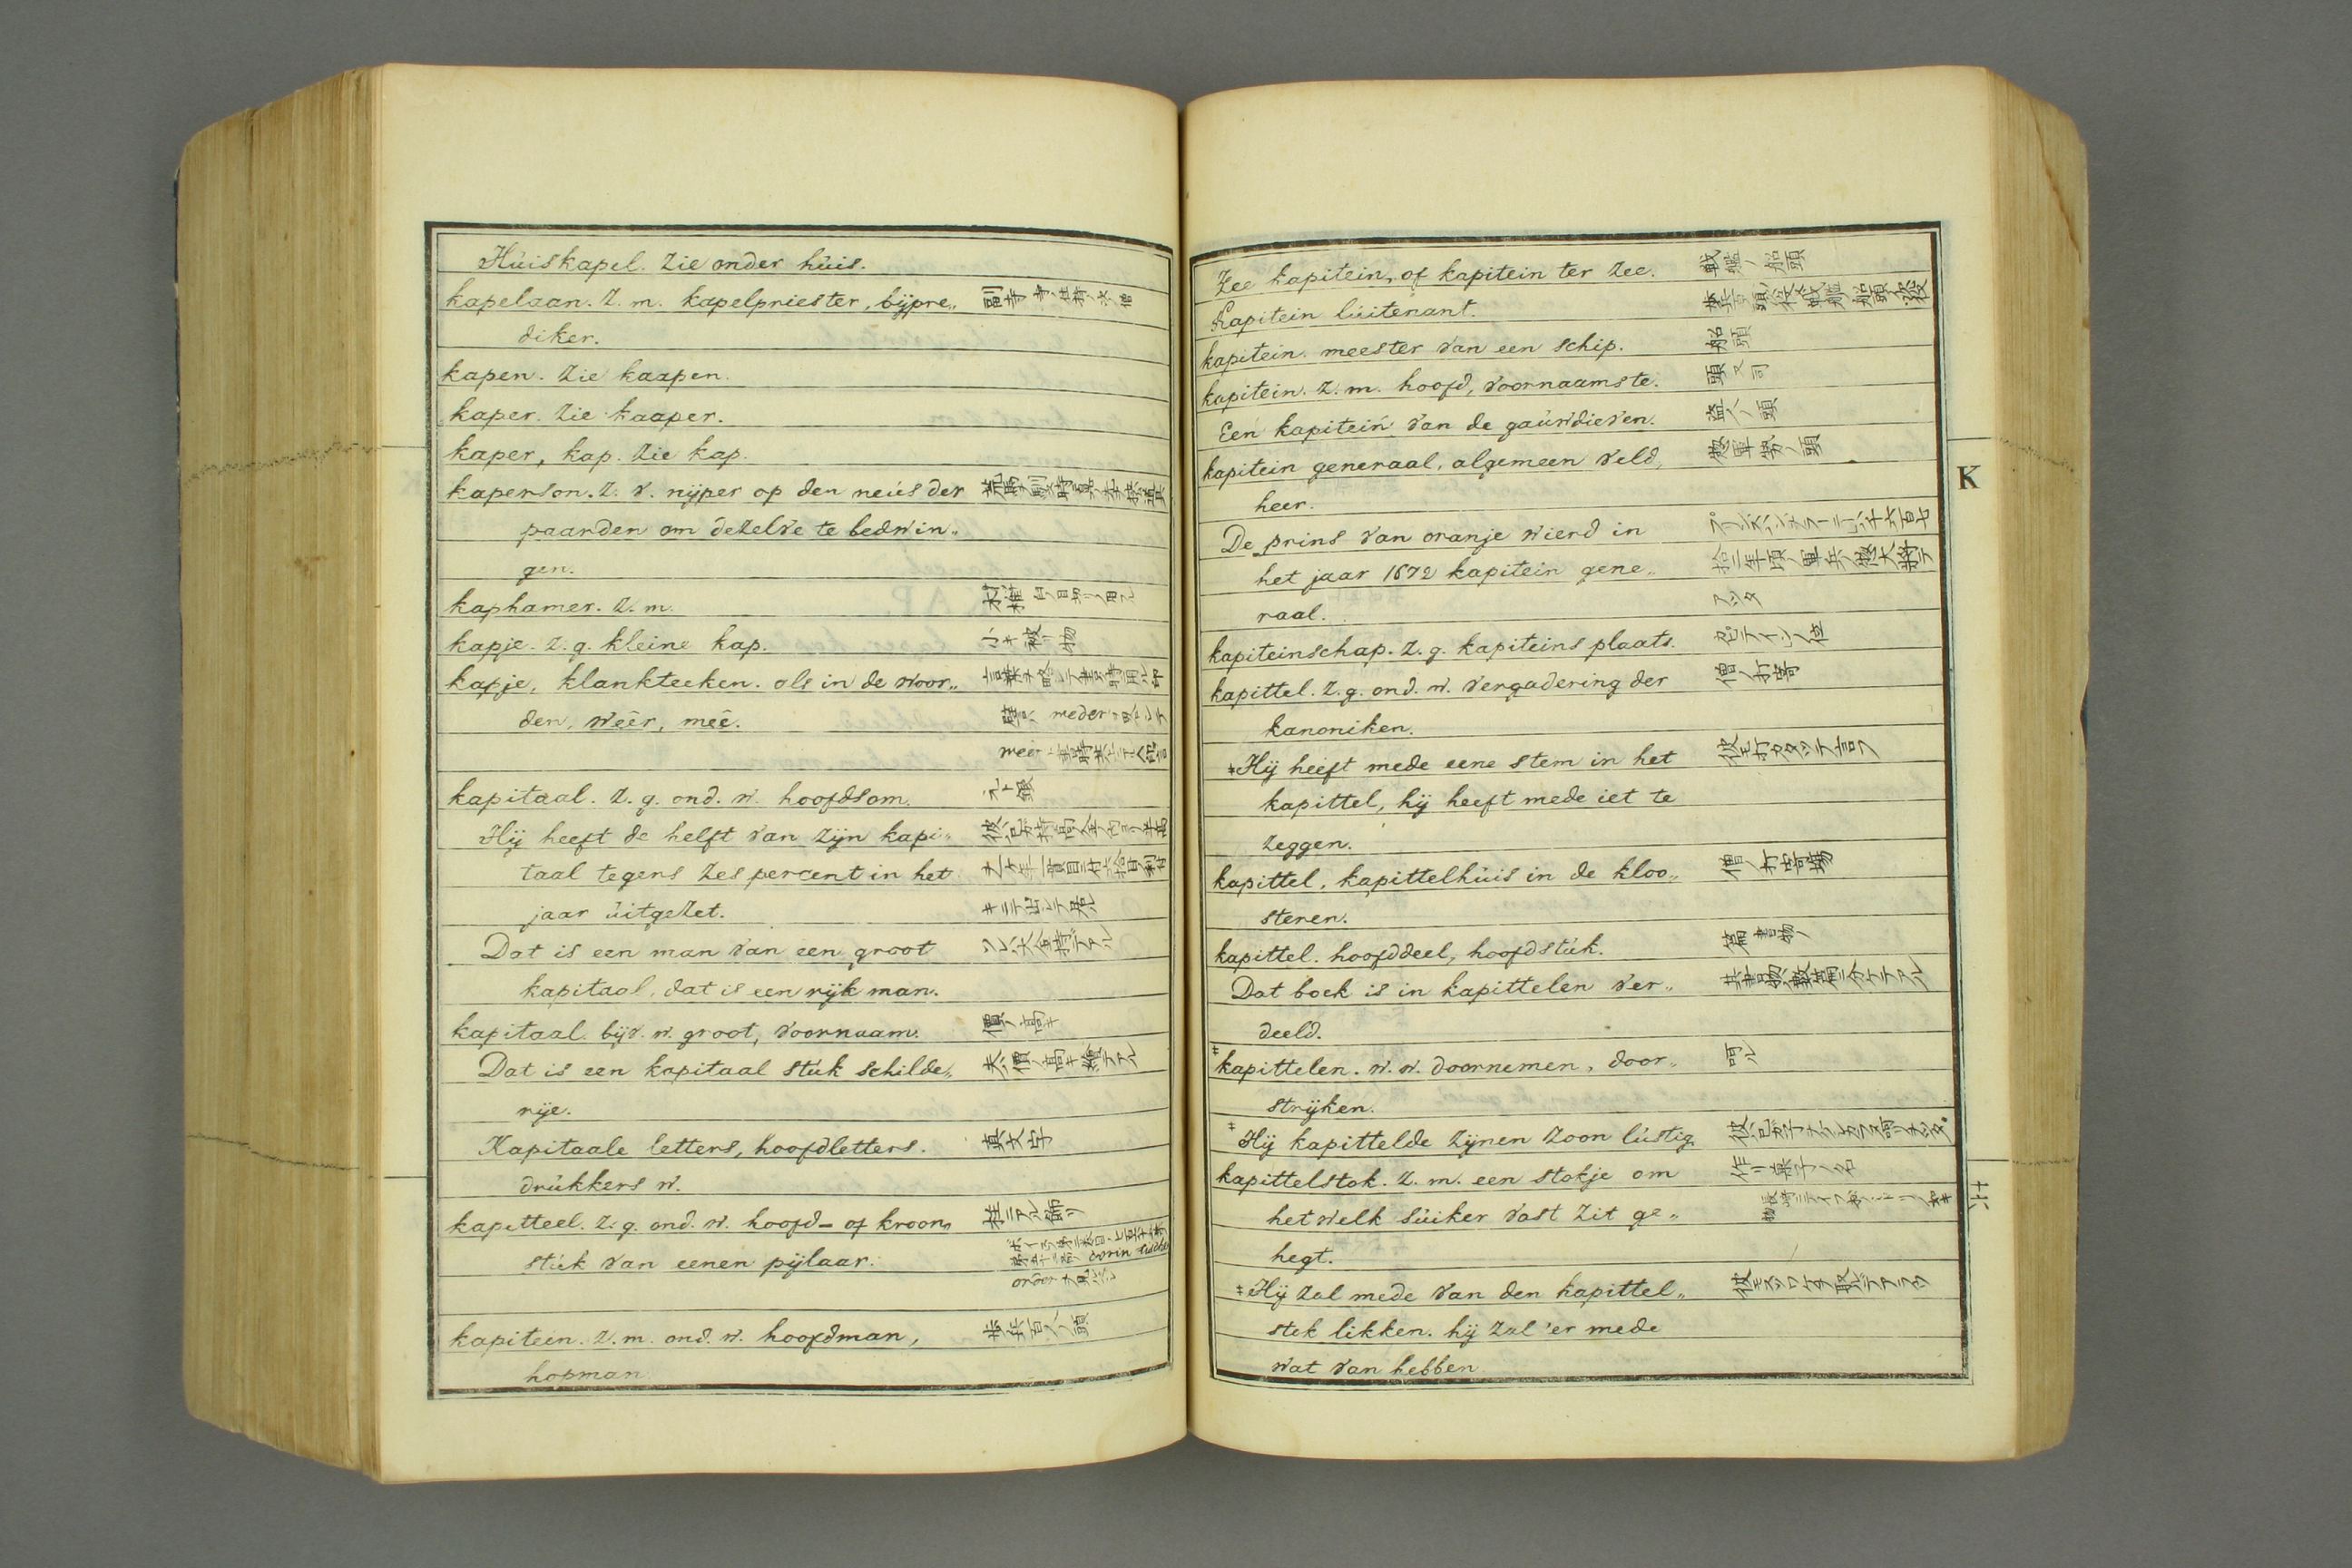 Húiskapel. Zie onder húis.
kapelaan. Z. m. kapelpriester, bijpre„
diker.
kapen. Zie kaapen.
kaper. Zie kaaper.
kaper, kap. Zie kap.
kaperson. Z. v. nijper op den neús der
paarden om dezelve te bedwin„
gen.
kaphamer. Z. m.
kapje. Z. g. kleine kap. 小キ被リ物
kapje, klankteeken. als in de woor„
den, wêêr, meê.
kapitaal. Z. g. ond. w. hoofdsom. 元ト銀
Hij heeft de helft van zijn kapi„
taal tegens zes percent in het
jaar úitgezet.
Dat is een man van een groot ソレハ大金持デアル
kapitaal, dat is een rijk man.
kapitaal. bijv. w. groot, voornaam. 價ノ高キ
Dat is een kapitaal stúk schilde„ 夫ハ價ノ高キ繪デアル
rije.
Kapitaale letters, hoofdletters. 真文字
drúkkers w.
kapitteel. Z. g. ond. w. hoofd- of kroon„ 柱ニアル飾リ
stúk van eenen pijlaar.
kapitein. Z. m. ond. w. hoofdman, 歩兵百人ノ頭
hopman
Zee kapitein, of kapitein ter zee. 戦艦ノ船頭
Kapitein lúitenant.
kapitein. meester van een schip. 船頭
kapitein. Z. m. hoofd, voornaamste. 頭又司
Een kapitein van de gaúwdieven. 盗人ノ頭
kapitein generaal, algemeen veld„ 惣軍勢ノ頭
heer.
De prins van oranje wierd in
het jaar 1672 kapitein gene„
raal.
kapiteinschap. Z. g. kapiteins plaats.
kapittel. Z. g. ond. w. vergadering der 僧ノ打寄
kanoniken.
‡Hij heeft mede eene stem in het
kapittel, hij heeft mede iet te
zeggen.
kapittel, kapittelhúis in de kloo„ 僧ノ打寄場
steren.
kapittel. hoofddeel, hoofdstúk. 篇 書物ノ
Dat boek is in kapittelen ver„ 其書物ハ數篇ニ分ケテアル
deeld.
‡kapittelen. w. w. doornemen, door„ 呵ル
strijken.
‡Hij kapittelde zijnen zoon lústig.
kapittelstok. Z. m. een stokje om 作リ菓子ノ名
het welk súiker vast zit ge„
hegt.
‡Hij zal mede van den kapittel„
stek likken. hij zal 'er mede
wat van hebben
K